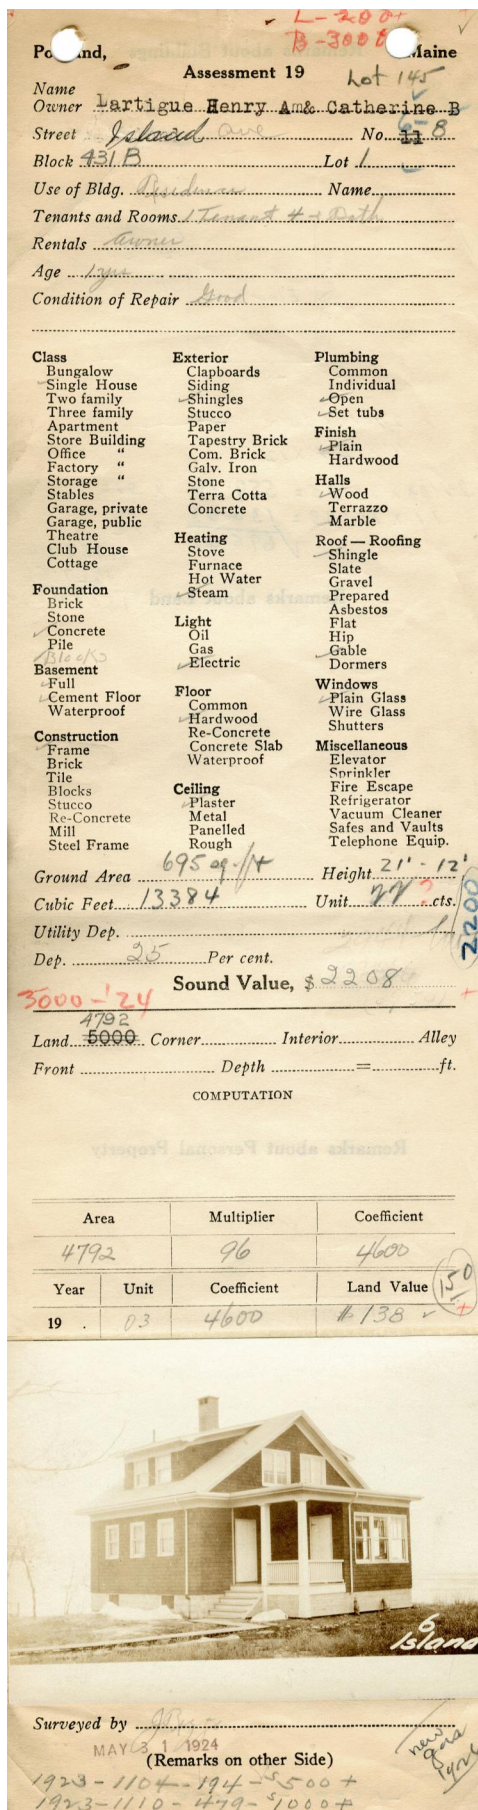 L-200+
B-3000
Portland, Maine
Assessment 19
Lot 145
Name
Owner Lartigue Henry Am& Catherine B
Street Island Ave No. 11 6-8
Block 431 B Lot 1
Use of Bldg. Residence Name
Tenants and Rooms 1 Tenant 4 + Bath
Rentals Owner
Age 1 yr
Condition of Repair Good
Class
Bungalow
Single House
Two family
Three family
Apartment
Store Building
Office "
Factory "
Storage "
Stables
Garage, private
Garage, public
Theatre
Club House
Cottage
Foundation
Brick
Stone
Concrete
Pile
Blocks
Basement
Full
Cement Floor
Waterproof
Construction
Frame
Brick
Tile
Blocks
Stucco
Re-Concrete
Mill
Steel Frame
Exterior
Clapboards
Siding
Shingles
Stucco
Paper
Tapestry Brick
Com. Brick
Galv. Iron
Stone
Terra Cotta
Concrete
Heating
Stove
Furnace
Hot Water
Steam
Light
Oil
Gas
Electric
Floor
Common
Hardwood
Re-Concrete
Concrete Slab
Waterproof
Ceiling
Plaster
Metal
Panelled
Rough
Plumbing
Common
Individual
Open
Set tubs
Finish
Plain
Hardwood
Halls
Wood
Terrazzo
Marble
Roof — Roofing
Shingle
Slate
Gravel
Prepared
Asbestos
Flat
Hip
Gable
Dormers
Windows
Plain Glass
Wire Glass
Shutters
Miscellaneous
Elevator
Sprinkler
Fire Escape
Refrigerator
Vacuum Cleaner
Safes and Vaults
Telephone Equip.
Ground Area 695 sq. ft Height 21' - 12'
Cubic Feet 13384 Unit 22 ? cts.
2200
Utility Dep.
Dep. 25 Per cent.
Sound Value, $ 2208
3000 - '24
4792
Land 5000 Corner Interior Alley
Front Depth = ft.
COMPUTATION
Area Multiplier Coefficient
4792 96 4600
Year Unit Coefficient Land Value 150
19 . 03 4600 $138
6
Island
Surveyed by
MAY 31 1924
(Remarks on other Side)
new
1923-1104-194-$500+
1923-1110-479-$1000+